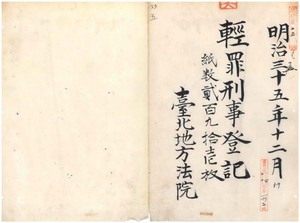 明治三十五年十二月
輕罪刑事登記
紙数貳百九拾壱枚
臺北地方法院